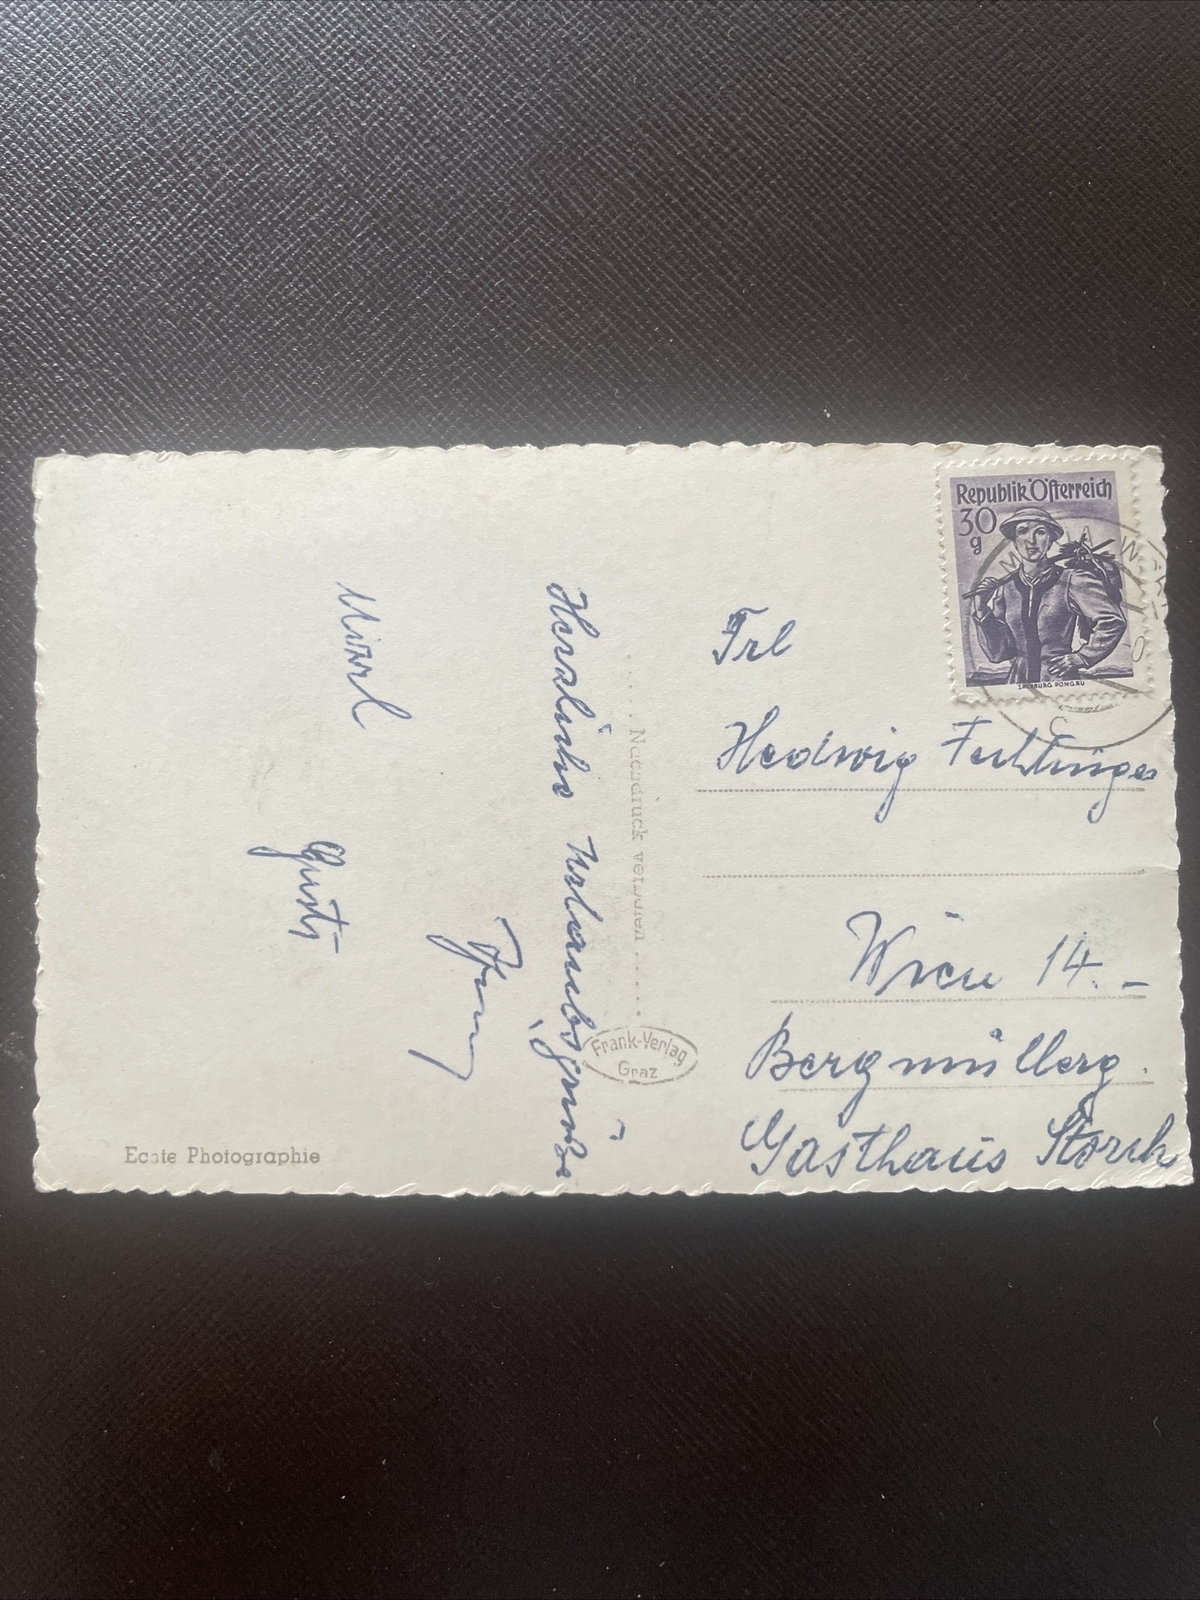 Herzliche Urlaubsgrüße
Mizzl
Gusti
Echte Photographie
Nachdruck verboten
Frank-Verlag
Graz
Republik Österreich
30
g
SALZBURG PONGAU
Frl
Hedwig
Wien 14. –
Bergmüllerg.
Gasthaus Storch